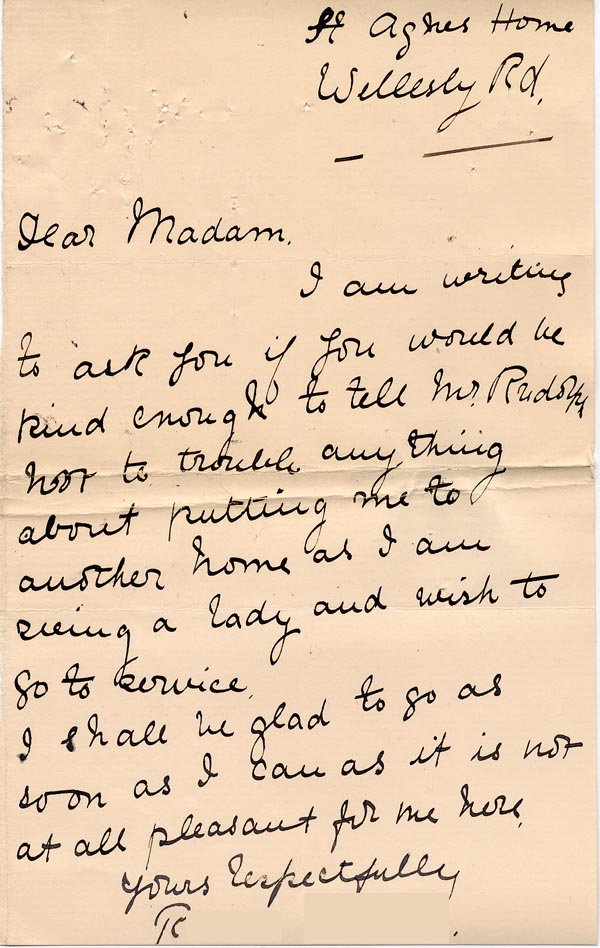 St Agnes Home
Wellesly Rd.
Dear Madam.
I am writing
to ask you if you would be
kind enough to tell Mr. Rudolf
not to trouble anything
about putting me to
another home as I am
seeing a lady and wish to
go to service.
I shall be glad to go as
soon as I can as it is not
at all pleasant for me here.
Yours respectfully